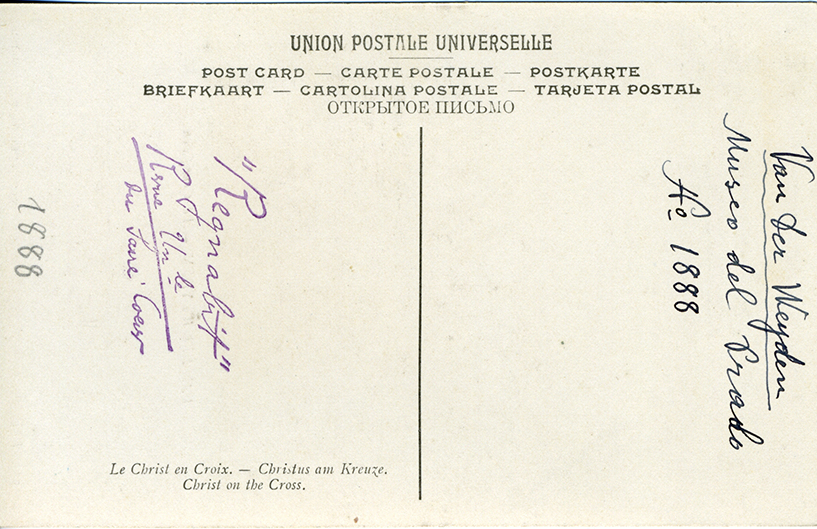 UNION POSTALE UNIVERSELLE
POST CARD — CARTE POSTALE — POSTKARTE
BRIEFKAART — CARTOLINA POSTALE — TARJETA POSTAL
ОТКРЫТОЕ ПИСЬМО
Van Der Weyden
Museo del Prado
Nº 1888
"Regnabit"
du Coeur
1888
Le Christ en Croix. — Christus am Kreuze.
Christ on the Cross.